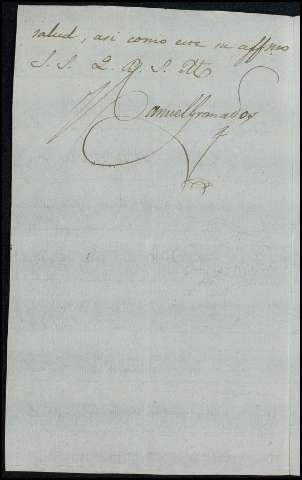 salud, asi como este su affmo
S. S. Q. B. S. M.
Manuel Granados